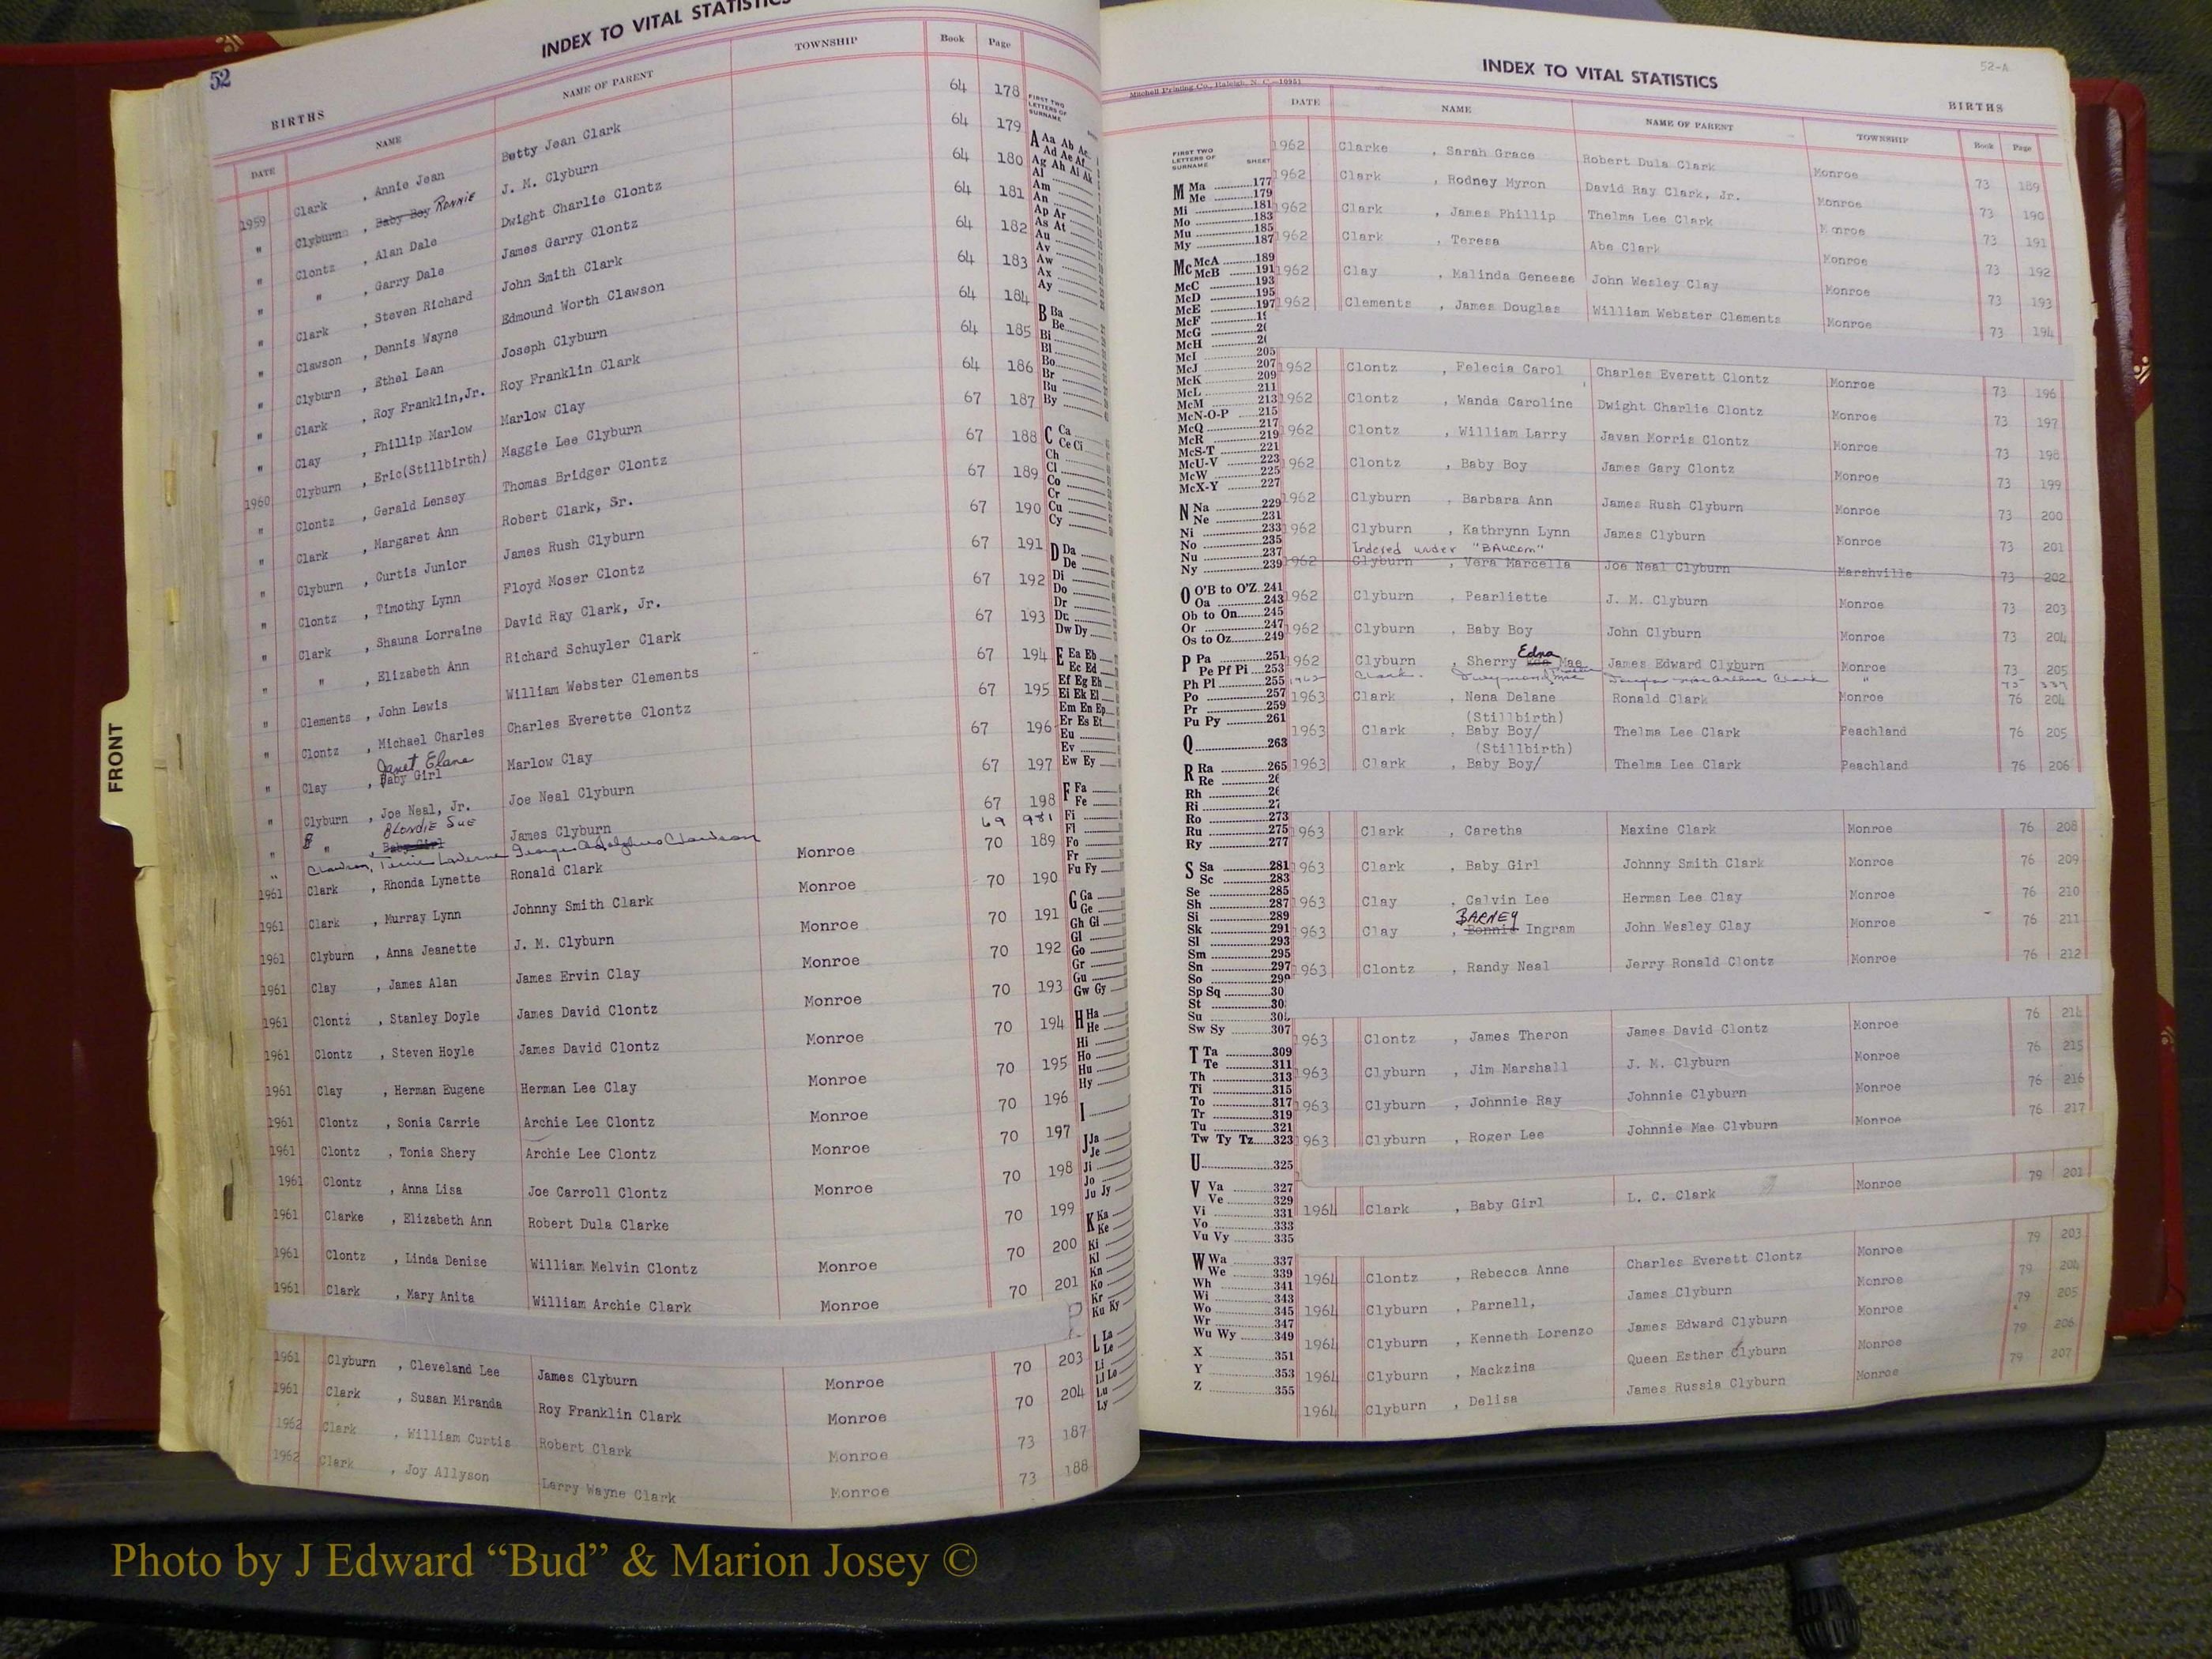 52
INDEX TO VITAL STATISTICS
BIRTHS
DATE NAME NAME OF PARENT TOWNSHIP Book Page
1959 Clark , Annie Jean Betty Jean Clark 64 178
" Clyburn , Baby Boy RONNIE J. M. Clyburn 64 179
" Clontz , Alan Dale Dwight Charlie Clontz 64 180
" " , Garry Dale James Garry Clontz 64 181
" Clark , Steven Richard John Smith Clark 64 182
" Clawson , Dennis Wayne Edmound Worth Clawson 64 183
" Clyburn , Ethel Lean Joseph Clyburn 64 184
" Clark , Roy Franklin,Jr. Roy Franklin Clark 64 185
" Clay , Phillip Marlow Marlow Clay 64 186
1960 Clyburn , Eric(Stillbirth) Maggie Lee Clyburn 67 187
" Clontz , Gerald Lensey Thomas Bridger Clontz 67 188
" Clark , Margaret Ann Robert Clark, Sr. 67 189
" Clyburn , Curtis Junior James Rush Clyburn 67 190
" Clontz , Timothy Lynn Floyd Moser Clontz 67 191
" Clark , Shauna Lorraine David Ray Clark, Jr. 67 192
" " , Elizabeth Ann Richard Schuyler Clark 67 193
" Clements , John Lewis William Webster Clements 67 194
" Clontz , Michael Charles Charles Everette Clontz 67 195
Janet Elane
" Clay , Baby Girl Marlow Clay 67 196
" Clyburn , Joe Neal, Jr. Joe Neal Clyburn 67 197
BLONDIE SUE
" " , Baby Girl James Clyburn 67 198
" Clawson, Terrie Laverne George Adolphus Clawson 69 981
1961 Clark , Rhonda Lynette Ronald Clark Monroe 70 189
1961 Clark , Murray Lynn Johnny Smith Clark Monroe 70 190
1961 Clyburn , Anna Jeanette J. M. Clyburn Monroe 70 191
1961 Clay , James Alan James Ervin Clay Monroe 70 192
1961 Clontz , Stanley Doyle James David Clontz Monroe 70 193
1961 Clontz , Steven Hoyle James David Clontz Monroe 70 194
1961 Clay , Herman Eugene Herman Lee Clay Monroe 70 195
1961 Clontz , Sonia Carrie Archie Lee Clontz Monroe 70 196
1961 Clontz , Tonia Shery Archie Lee Clontz Monroe 70 197
1961 Clontz , Anna Lisa Joe Carroll Clontz Monroe 70 198
1961 Clarke , Elizabeth Ann Robert Dula Clarke 70 199
1961 Clontz , Linda Denise William Melvin Clontz Monroe 70 200
1961 Clark , Mary Anita William Archie Clark Monroe 70 201
1961 Clyburn , Cleveland Lee James Clyburn Monroe 70 203
1961 Clark , Susan Miranda Roy Franklin Clark Monroe 70 204
1962 Clark , William Curtis Robert Clark Monroe 73 187
1962 Clark , Joy Allyson Larry Wayne Clark Monroe 73 188
FRONT
FIRST TWO LETTERS OF SURNAME
A Aa Ab Ac
Ad Ae Af
Ag Ah Ai Ak
Al
Am
An
Ap Ar
As At
Au
Av
Aw
Ax
Ay
B Ba
Be
Bi
Bl
Bo
Br
Bu
By
C Ca
Ce Ci
Ch
Cl
Co
Cr
Cu
Cy
D Da
De
Di
Do
Dr
Du
Dw Dy
E Ea Eb
Ec Ed
Ef Eg Eh
Ei Ek El
Em En Ep
Er Es Et
Eu
Ev
Ew Ey
F Fa
Fe
Fi
Fl
Fo
Fr
Fu Fy
G Ga
Ge
Gh Gi
Gl
Go
Gr
Gu
Gw Gy
H Ha
He
Hi
Ho
Hu
Hy
I
J Ja
Je
Ji
Jo
Ju Jy
K Ka
Ke
Ki
Kl
Kn
Ko
Kr
Ku Ky
L La
Le
Li
Ll Lo
Lu
Ly
INDEX TO VITAL STATISTICS
52-A
Mitchell Printing Co., Raleigh, N. C.—10951
BIRTHS
DATE NAME NAME OF PARENT TOWNSHIP Book Page
1962 Clarke , Sarah Grace Robert Dula Clark Monroe 73 189
1962 Clark , Rodney Myron David Ray Clark, Jr. Monroe 73 190
1962 Clark , James Phillip Thelma Lee Clark Monroe 73 191
1962 Clark , Teresa Abe Clark Monroe 73 192
1962 Clay , Malinda Geneese John Wesley Clay Monroe 73 193
1962 Clements , James Douglas William Webster Clements Monroe 73 194
1962 Clontz , Felecia Carol Charles Everett Clontz Monroe 73 196
1962 Clontz , Wanda Caroline Dwight Charlie Clontz Monroe 73 197
1962 Clontz , William Larry Javan Morris Clontz Monroe 73 198
1962 Clontz , Baby Boy James Gary Clontz Monroe 73 199
1962 Clyburn , Barbara Ann James Rush Clyburn Monroe 73 200
1962 Clyburn , Kathrynn Lynn James Clyburn Monroe 73 201
Indexed under "BAucom"
1962 Clyburn , Vera Marcella Joe Neal Clyburn Marshville 73 202
1962 Clyburn , Pearliette J. M. Clyburn Monroe 73 203
1962 Clyburn , Baby Boy John Clyburn Monroe 73 204
Edna
1962 Clyburn , Sherry Mae James Edward Clyburn Monroe 73 205
1962 Clark Douglas MacArthur Clark "
1963 Clark , Nena Delane Ronald Clark Monroe 76 204
(Stillbirth)
1963 Clark , Baby Boy/ Thelma Lee Clark Peachland 76 205
(Stillbirth)
1963 Clark , Baby Boy/ Thelma Lee Clark Peachland 76 206
1963 Clark , Caretha Maxine Clark Monroe 76 208
1963 Clark , Baby Girl Johnny Smith Clark Monroe 76 209
1963 Clay , Calvin Lee Herman Lee Clay Monroe 76 210
BARNEY
1963 Clay , Bonnie Ingram John Wesley Clay Monroe 76 211
1963 Clontz , Randy Neal Jerry Ronald Clontz Monroe 76 212
1963 Clontz , James Theron James David Clontz Monroe 76 214
1963 Clyburn , Jim Marshall J. M. Clyburn Monroe 76 215
1963 Clyburn , Johnnie Ray Johnnie Clyburn Monroe 76 216
1963 Clyburn , Roger Lee Johnnie Mae Clyburn Monroe 76 217
1964 Clark , Baby Girl L. C. Clark Monroe 79 201
1964 Clontz , Rebecca Anne Charles Everett Clontz Monroe 79 203
1964 Clyburn , Parnell, James Clyburn Monroe 79 204
1964 Clyburn , Kenneth Lorenzo James Edward Clyburn Monroe 79 205
1964 Clyburn , Mackzina Queen Esther Clyburn Monroe 79 206
1964 Clyburn , Delisa James Russia Clyburn Monroe 79 207
FIRST TWO LETTERS OF SURNAME SHEET
M Ma 177
Me 179
Mi 181
Mo 183
Mu 185
My 187
Mc McA 189
McB 191
McC 193
McD 195
McE 197
McF
McG
McH
McI 205
McJ 207
McK 209
McL 211
McM 213
McN-O-P 215
McQ 217
McR 219
McS-T 221
McU-V 223
McW 225
McX-Y 227
N Na 229
Ne 231
Ni 233
No 235
Nu 237
Ny 239
O O'B to O'Z 241
Oa 243
Ob to On 245
Or 247
Os to Oz 249
P Pa 251
Pe Pf Pi 253
Ph Pl 255
Po 257
Pr 259
Pu Py 261
Q 263
R Ra 265
Re
Rh
Ri
Ro 273
Ru 275
Ry 277
S Sa 281
Sc 283
Se 285
Sh 287
Si 289
Sk 291
Sl 293
Sm 295
Sn 297
So 299
Sp Sq
St
Su
Sw Sy 307
T Ta 309
Te 311
Th 313
Ti 315
To 317
Tr 319
Tu 321
Tw Ty Tz 323
U 325
V Va 327
Ve 329
Vi 331
Vo 333
Vu Vy 335
W Wa 337
We 339
Wh 341
Wi 343
Wo 345
Wr 347
Wu Wy 349
X 351
Y 353
Z 355
Photo by J Edward “Bud” & Marion Josey ©